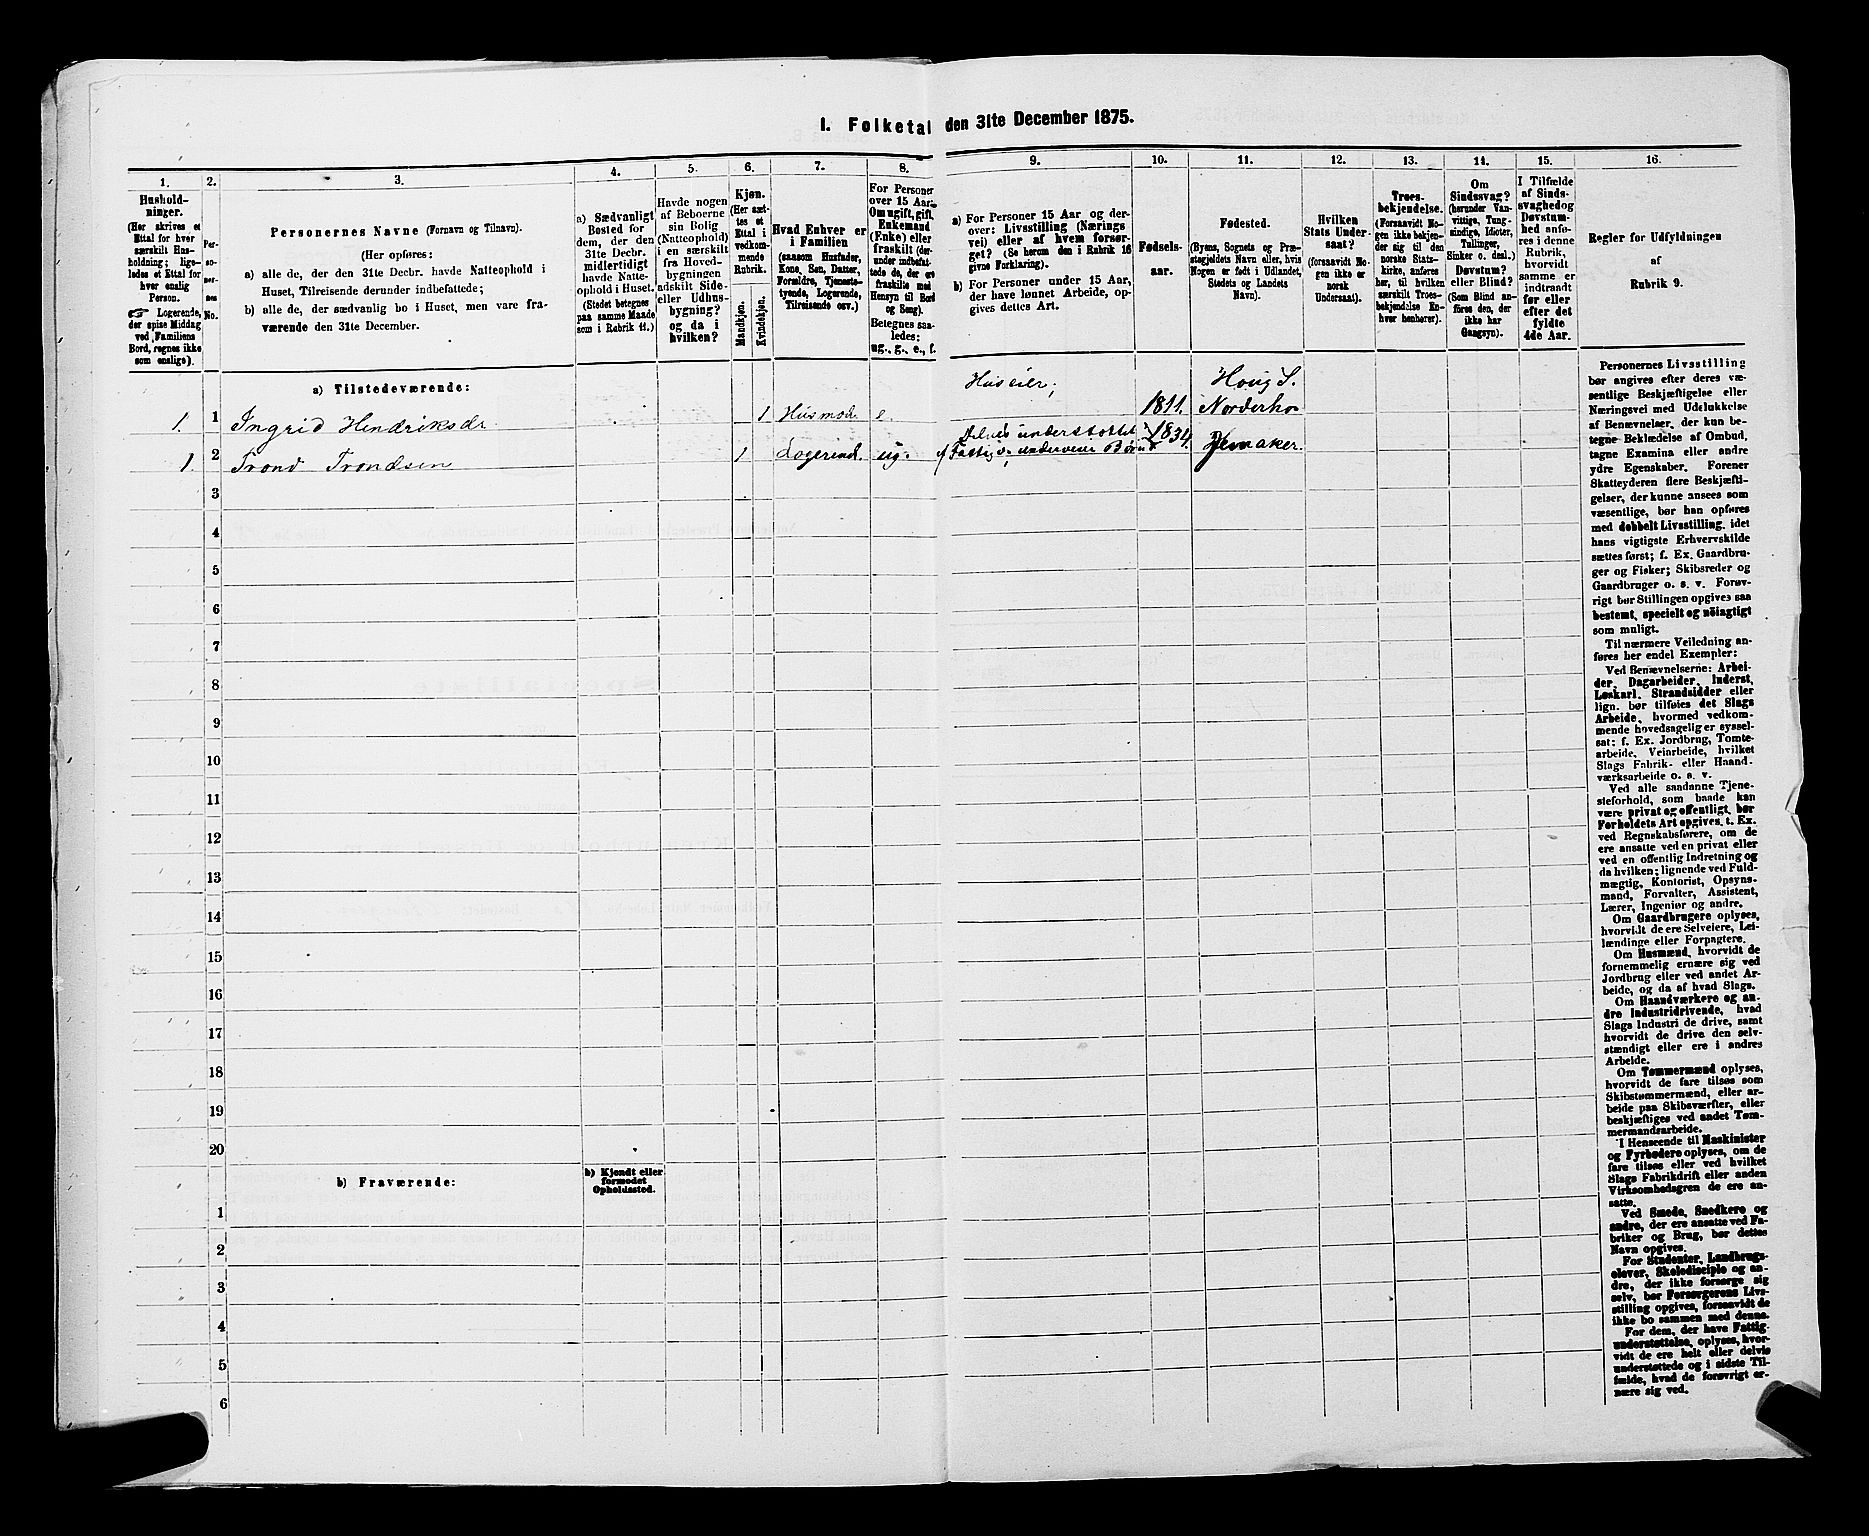 I. Folketal den 31te December 1875.
1.
2.
3.
4.
5.
6.
7.
8.
9.
10.
11.
12.
13.
14.
15.
16.
Hushold-
ninger.
(Her skrives et
Ettal for hver
særskilt Hus-
holdning; lige-
ledes et Ettal for
hver enslig
Person.
☞ Logerende,
der spise Middag
ved Familiens
Bord, regnes ikke
som enslige).
Per-
so-
ner-
nes
No.
Personernes Navne (Fornavn og Tilnavn).
(Her opføres:
a) alle de, der den 31te Decbr. havde Natteophold i
Huset, Tilreisende derunder indbefattede;
b) alle de, der sædvanlig bo i Huset, men vare fra-
værende den 31te December.
a) Sædvanligt
Bosted for
dem, der den
31te Decbr.
midlertidigt
havde Natte-
ophold i Huset.
(Stedet betegnes
paa samme Maade
som i Rubrik 11.)
Havde nogen
af Beboerne
sin Bolig
(Natteophold)
i en særskilt
fra Hoved-
bygningen
adskilt Side-
eller Udhus-
bygning?
og da i
hvilken?
Kjøn.
(Her sæt-
tes et
Ettal i
vedkom-
mende
Rubrik.
Mandkjøn.
Kvindekjøn.
Hvad Enhver er
i Familien
(saasom Husfader,
Kone, Søn, Datter,
Forældre, Tjeneste-
tyende, Logerende,
Tilreisende osv.)
For Personer
over 15 Aar:
Om ugift, gift,
Enkemand
(Enke) eller
fraskilt (der-
under indbefat-
tede de, der ere
fraskilte med
Hensyn til Bord
og Seng).
Betegnes saa-
ledes:
ug., g., e., f.
a) For Personer 15 Aar og der-
over: Livsstilling (Nærings
vei) eller af hvem forsør-
get? (Se herom den i Rubrik 16
givne Forklaring).
b) For Personer under 15 Aar,
der have lønnet Arbeide, op-
gives dettes Art.
Fødsels-
aar.
Fødested.
(Byens, Sognets og Præ-
stegjeldets Navn eller, hvis
Nogen er født i Udlandet,
Stedets og Landets
Navn).
Hvilken
Stats Under-
saat?
(forsaavidt No-
gen ikke er
norsk
Undersaat).
Troes-
bekjendelse.
(Forsaavidt No-
gen ikke bekjen-
der sig til den
norske Stats-
kirke, anføres
her, til hvilken
særskilt Troes-
bekjendelse En-
hver henhører).
Om
Sindssvag?
(herunder Van-
vittige, Tung-
sindige, Idioter,
Tullinger,
Sinker o. desl.)
Døvstum?
eller Blind?
(Som Blind an-
føres den, der
ikke har
Gangsyn).
I Tilfælde
af Sinds-
svaghed og
Døvstum-
hed anfø-
res i denne
Rubrik,
hvorvidt
samme er
indtraadt
før eller
efter det
fyldte
4de Aar.
Regler for Udfyldningen
af
Rubrik 9.
a) Tilstedeværende:
1. 1 Ingrid Hendriksdr 1 Husmod. e. Huseier; 1811. Houg S. Norderho
1 2 Trond Trondsen 1 Logerend. ug. Delvis understøttet af Fattigv., underviser Børn 1834. Hemaker.
3
4
5
6
7
8
9
10
11
12
13
14
15
16
17
18
19
20
b) Fraværende:
b) Kjendt eller
formodet
Opholdssted.
1
2
3
4
5
6
Personernes Livsstilling
bør angives efter deres væ-
sentlige Beskjæftigelse eller
Næringsvei med Udelukkelse
af Benævnelser, der kun be-
tegne Beklædelse af Ombud,
tagne Examina eller andre
ydre Egenskaber. Forener
Skatteyderen flere Beskjæfti-
gelser, der kunne ansees som
væsentlige, bør han opføres
med dobbelt Livsstilling, idet
hans vigtigste Erhvervskilde
sættes først; f. Ex. Gaardbru-
ger og Fisker; Skibsreder og
Gaardbruger o. s. v. Forøv-
rigt bør Stillingen opgives saa
bestemt, specielt og nöiagtigt
som muligt.
Til nærmere Veiledning an-
føres her endel Exempler:
Ved Benævnelserne: Arbei-
der, Dagarbeider, Inderst,
Løskarl, Strandsidder eller
lign. bør tilføies det Slags
Arbeide, hvormed vedkom-
mende hovedsagelig er syssel-
sat; f. Ex. Jordbrug, Tomte-
arbeide, Veiarbeide, hvilket
Slags Fabrik- eller Haand-
værksarbeide o. s. v.
Ved alle saadanne Tjene-
steforhold, som baade kan
være privat og offentligt, bør
Forholdets Art opgives, t. Ex.
ved Regnskabsførere, om de
ere ansatte ved en privat eller
ved en offentlig Indretning og
da hvilken; lignende ved Fuld-
mægtig, Kontorist, Opsyns-
mand, Forvalter, Assistent,
Lærer, Ingeniør og andre.
Om Gaardbrugere oplyses,
hvorvidt de ere Selveiere, Lei-
lændinge eller Forpagtere.
Om Husmænd, hvorvidt de
fornemmelig ernære sig ved
Jordbrug eller ved andet Ar-
beide, og da af hvad Slags.
Om Haandværkere og an-
dre Industridrivende, hvad
Slags Industri de drive, samt
hvorvidt de drive den selv-
stændigt eller ere i andres
Arbeide.
Om Tømmermænd oplyses,
hvorvidt de fare tilsøs som
Skibstømmermænd, eller ar-
beide paa Skibsværfter, eller
beskjæftiges ved andet Tøm-
mermandsarbeide.
I Henseende til Maskinister
og Fyrbødere oplyses, om de
fare tilsøs eller ved hvilket
Slags Fabrikdrift eller anden
Virksomhedsgren de ere an-
satte.
Ved Smede, Snedkere og
andre, der ere ansatte ved Fa-
briker og Brug, bør dettes
Navn opgives.
For Studenter, Landbrugs-
elever, Skoledisciple og an-
dre, der ikke forsørge sig
selv, bør Forsørgerens Livs-
stilling opgives, forsaavidt de
ikke bo sammen med denne.
For dem, der have Fattig-
understøttelse, oplyses, hvor-
vidt de ere helt eller delvis
understøttede og i sidste Til-
fælde, hvad de forøvrigt er-
nære sig ved.